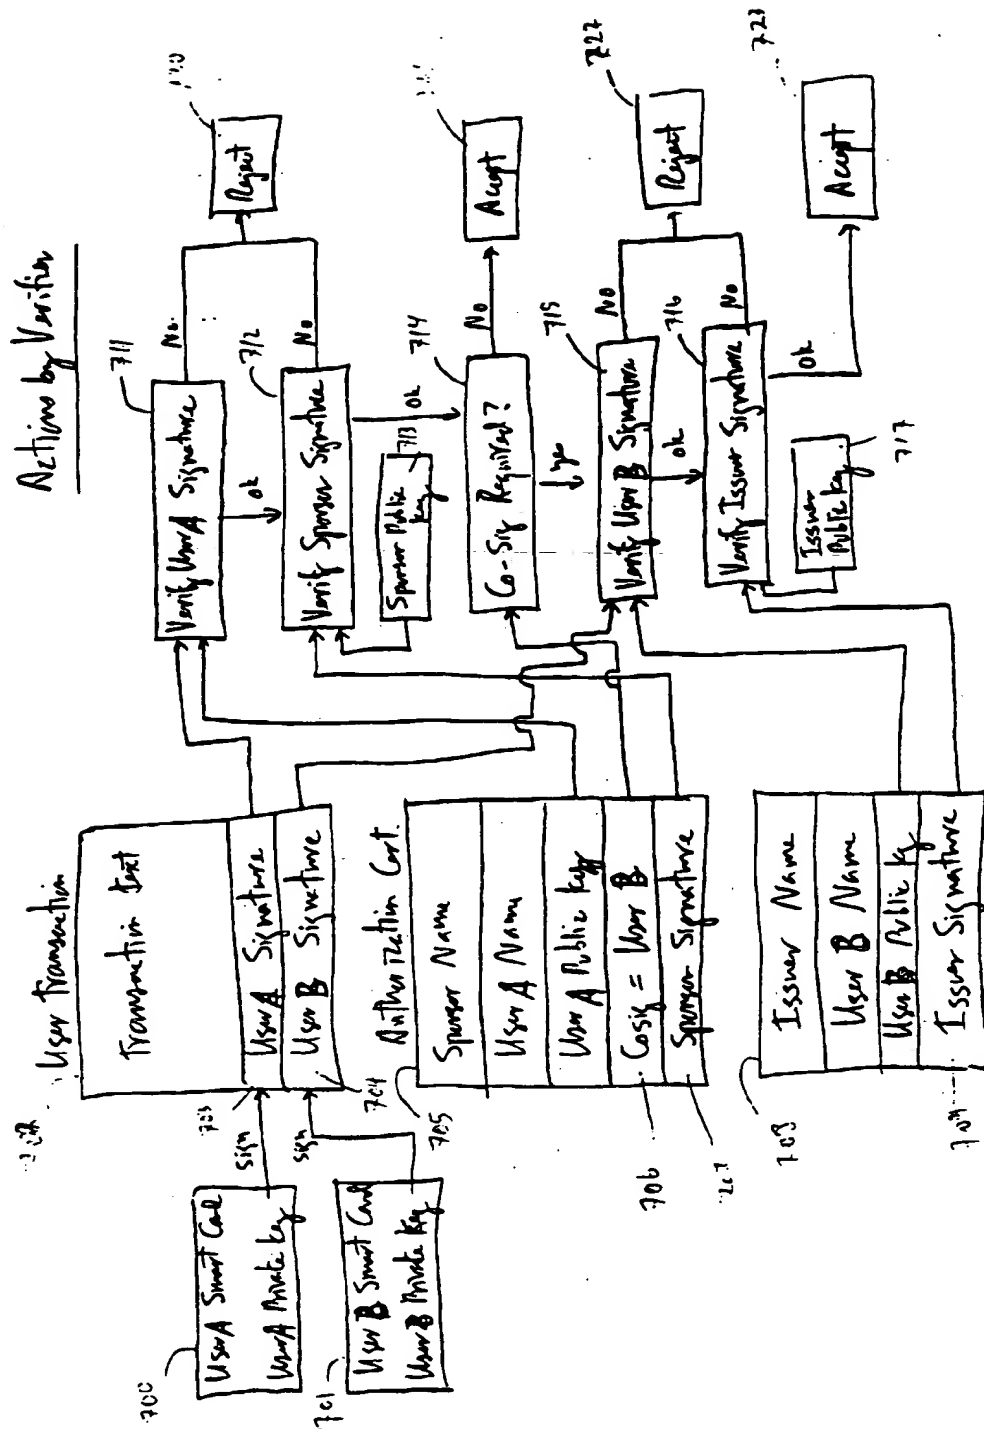 Actions by Verifier
User Transaction
Transaction text
User A Signature
User B Signature
703
704
sign
sign
700
User A Smart Card
User A Private key
701
User B Smart Card
User B Private key
Authorization Cert.
705
Sponsor Name
User A Name
User A Public key
Cosig = User B
Sponsor Signature
706
708
Issuer Name
User B Name
User B Public key
Issuer Signature
709
711
Verify User A Signature
No.
ok
712
Verify Sponsor Signature
No
ok
Reject
713
Sponsor Public
key
714
Co-Sig Required?
No
Accept
yes
715
Verify User B Signature
No
ok
716
Verify Issuer Signature
No
ok
Reject
722
Accept
723
Issuer
Public key
717